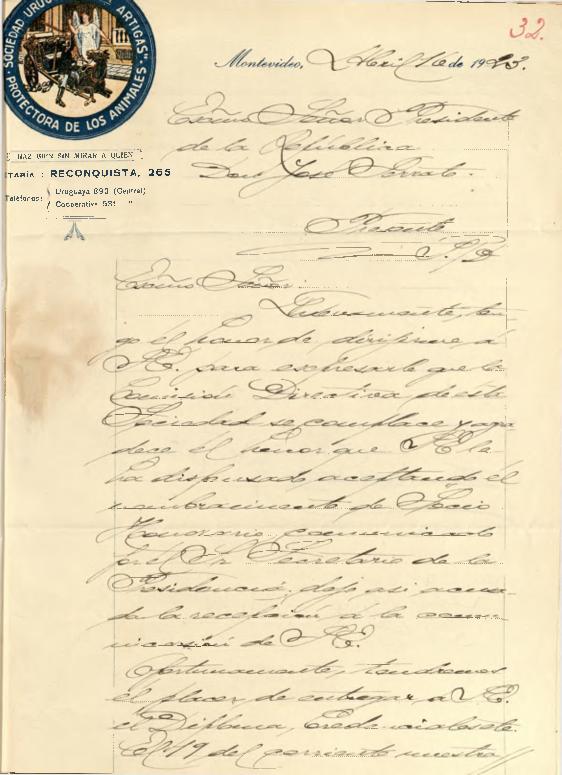 32.
SOCIEDAD URUGUAYA "ARTIGAS"
PROTECTORA DE LOS ANIMALES
HAZ BIEN SIN MIRAR A QUIEN
TARIA: RECONQUISTA, 265
Teléfonos: Uruguaya 690 (Central)
Cooperativa 531 "
Montevideo, Abril 16 de 1923.
Exmo Señor Presidente
de la República
Don José Serrato.
Presente
Exmo Señor:
Nuevamente, ten-
go el honor de dirijirme á
V.E. para expresarle que la
Comisión Directiva de esta
Sociedad se complace y agra
dece el honor que V.E. le
ha dispensado aceptando el
nombramiento de Socio
Honorario comunicado
por el Sr Secretario de la
Presidencia, dejo asi acusa-
da la recepción á la comu-
nicación de V.E.
Oportunamente, tendremos
el placer de entregar, a V.E.
el Diploma, Credenciales etc.
El 19 del corriente nuestra